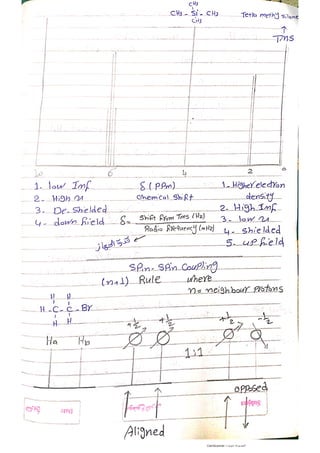 CH3
CH3 - Si - CH3 Tetra methyl silane
CH3
↑
TMS
10 6 4 2 0
1. low Imf δ (PPm) 1. Higher electron
2. High ν Chemical Shift density
3. De-Shielded 2. High Imf
4. down field δ = Shift from TMS (Hz) 3. low ν
Radio frequency (MHz) 4. shielded
5. up field
Spin-Spin Coupling
(n+1) Rule where
n = neighbour protons
H H
H - C - C - Br
H H
+1/2 +1/2 +1/2 -1/2
Ha Hb
1:1
opposed
Aligned